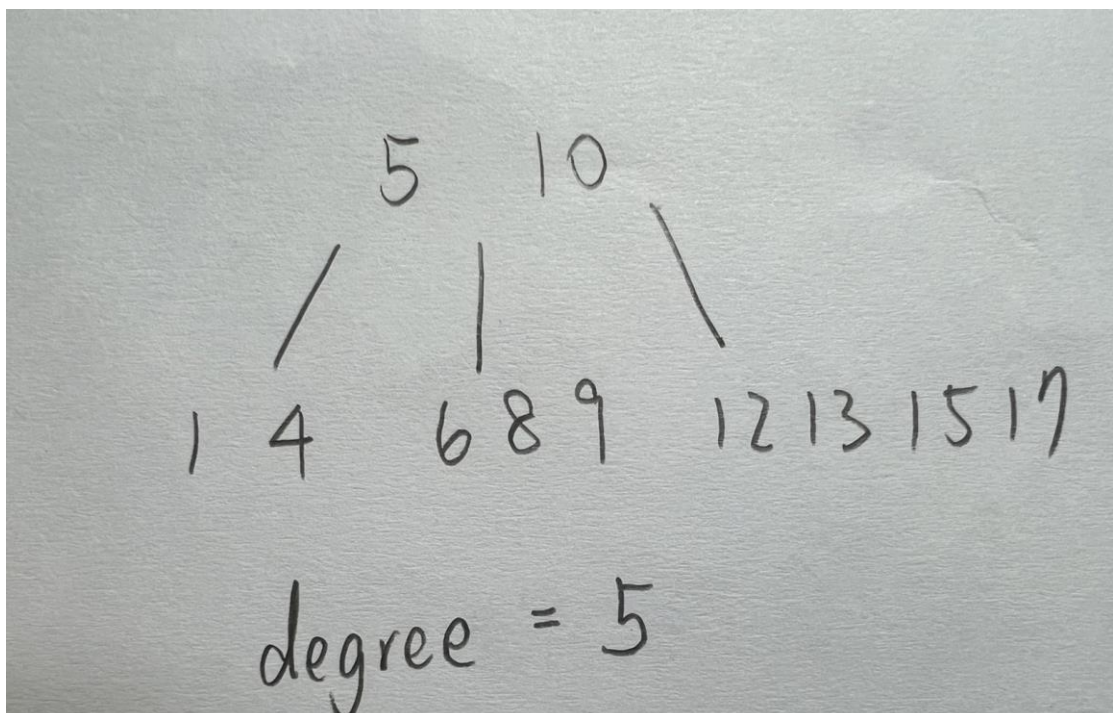 5 10
1 4 6 8 9 12 13 15 17
degree = 5